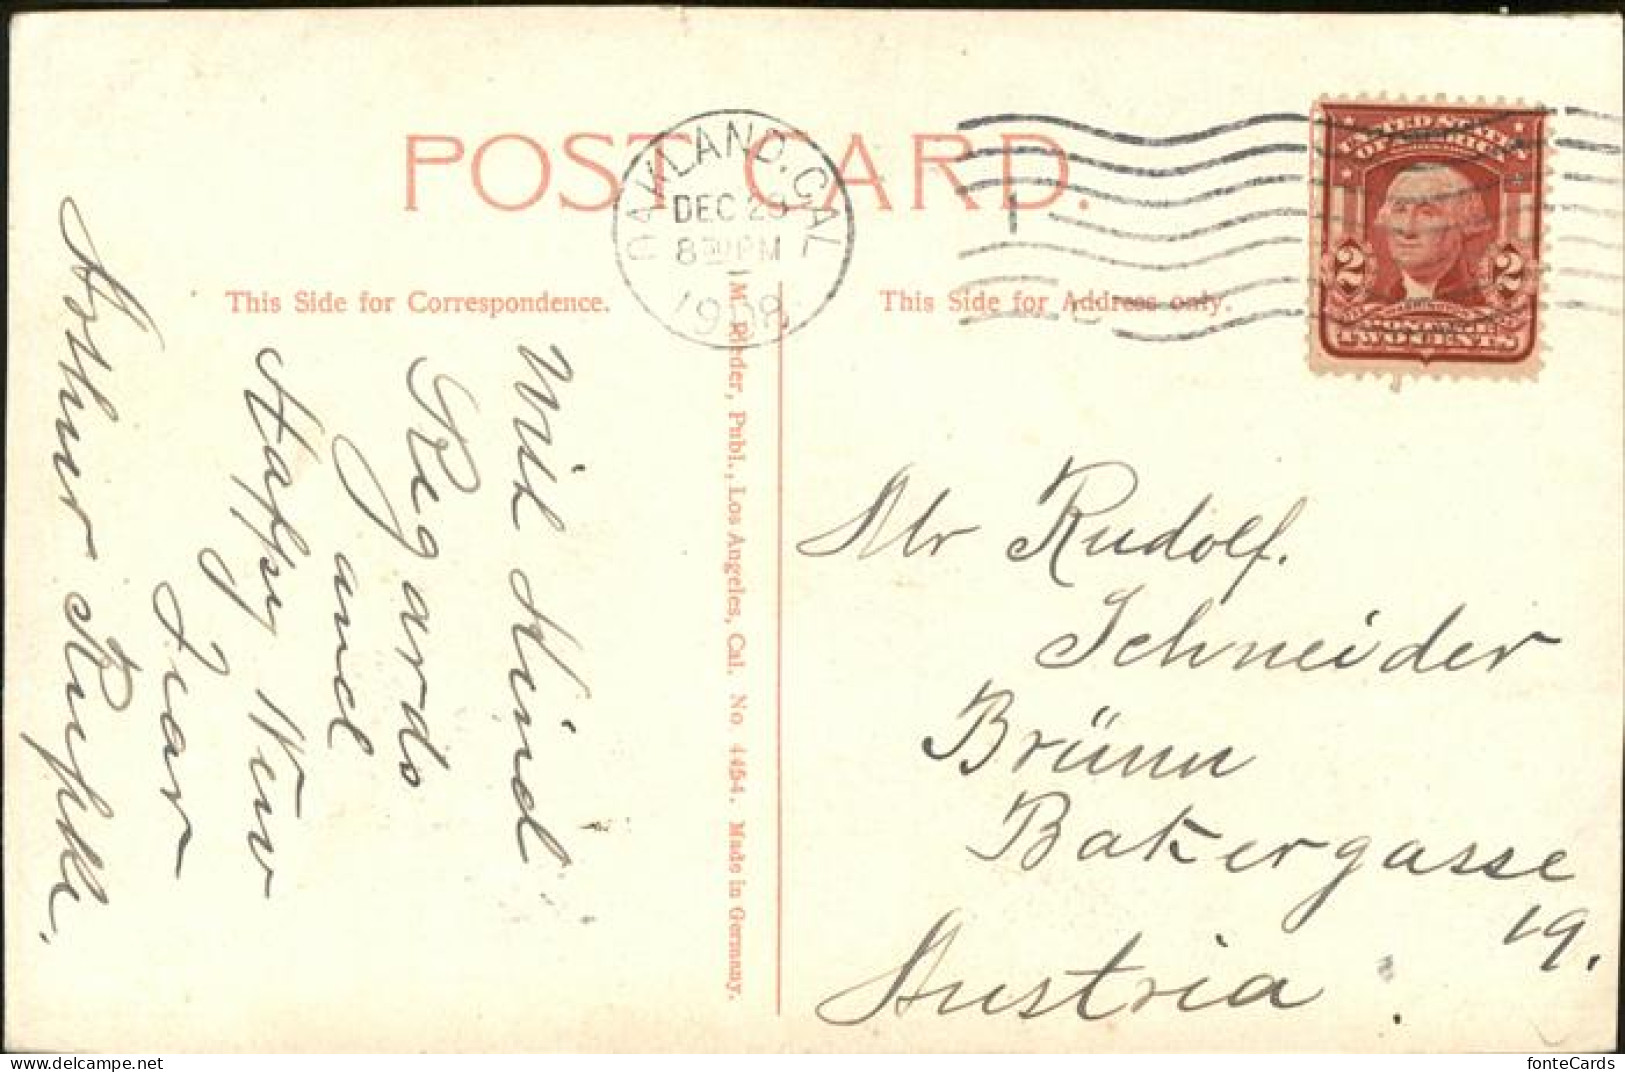 POST CARD.
OAKLAND, CAL
DEC 29
8 30 PM
1908
This Side for Correspondence.
This Side for Address only.
UNITED STATES
OF AMERICA
2 2
TWO CENTS
M. Rieder, Publ., Los Angeles, Cal. No 4454. Made in Germany.
With Kind
Regards
and
Happy New
Year
Arthur
Mr Rudolf.
Schneider
Brünn
Bakergasse
19.
Austria
delcampe.net
fonteCards